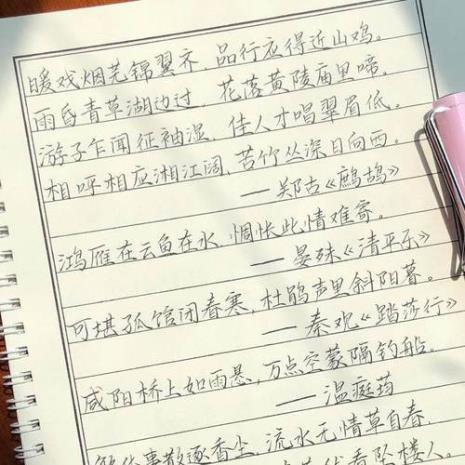 暖戏烟芜锦翼齐 品行应得近山鸡。
雨昏青草湖边过, 花落黄陵庙里啼。
游子乍闻征袖湿, 佳人才唱翠眉低。
相呼相应湘江阔, 苦竹丛深日向西。
——郑古《鹧鸪》
鸿雁在云鱼在水, 惆怅此情难寄。
——晏殊《清平乐》
可堪孤馆闭春寒, 杜鹃声里斜阳暮。
——秦观《踏莎行》
咸阳桥上如雨悬, 万点空蒙隔钓船。
——温庭筠
繁华事散逐香尘, 流水无情草自春。
坠楼人。